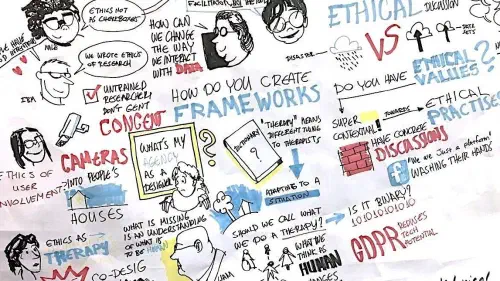 ETHICS NOT
AS CHECKBOXES
WE WROTE ETHICS
OF RESEARCH
UNTRAINED
RESEARCHER!
DON'T GENT
CONCENT
CAMERAS
INTO PEOPLE'S
HOUSES
ETHICS OF
USER
INVOLVEMENT
HOW CAN
WE CHANGE
THE WAY
WE INTERACT
WITH DATA
DISASTER
HOW DO YOU CREATE
FRAMEWORKS
WHAT'S MY
AGENCY
AS A
DESIGNER
?
DICTIONARY
?
"THERAPY" MEANS
DIFFERENT THING
TO THERAPISTS
ADAPTING TO A
SITUATION
ETHICAL
DISCUSSION
VS
DATA
SETS
DO YOU HAVE
ETHICAL
VALUES?
SUPER
CONTEXTUAL
TOWARDS
ETHICAL
PRACTISES
HAVE CONCRETE
DISCUSSIONS
"We are just a platform"
WASHING THEIR HANDS
IS IT BINARY?
10101010101010
GDPR
REDUSES
TECH
POTENTIAL
ETHICS AS
THERAPY
CO-DESIG
WHAT IS MISSING
IS AN UNDERSTANDING
OF WHAT IS
TO BE HUMAN
SHOULD WE CALL WHAT
WE DO A THERAPY?
WHAT WE
THINK AS
HUMAN